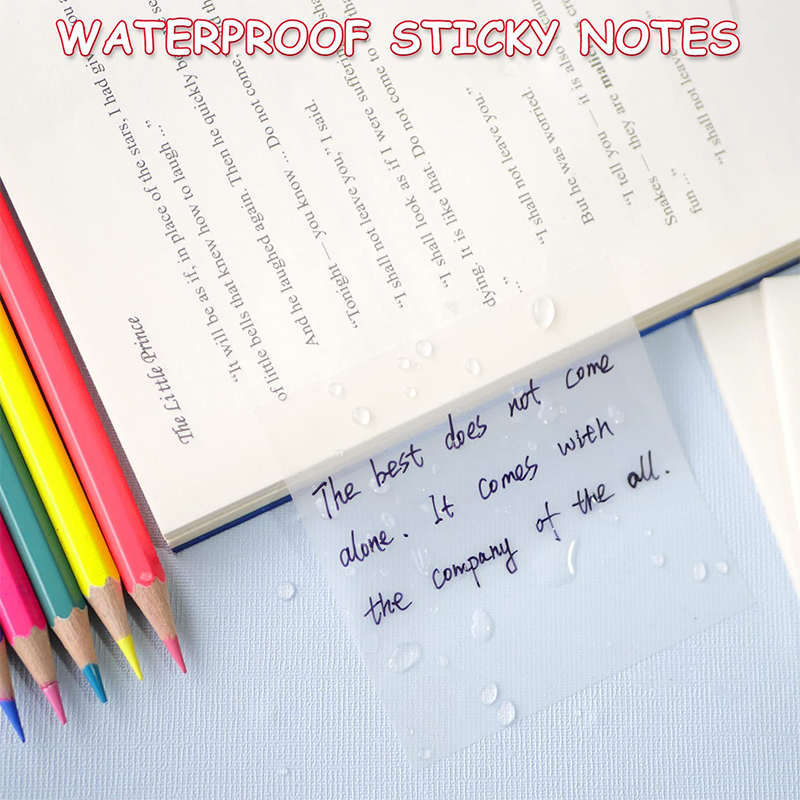 WATERPROOF STICKY NOTES
The Little Prince
"It will be as if, in place of the stars, I had giv
of little bells that knew how to laugh ..."
And he laughed again. Then he quickly be
"Tonight — you know ... Do not come
"I shall not leave you," I said.
"I shall look as if I were sufferin
dying. It is like that. Do not come to th
..."
"I shall not leave you."
But he was worried.
"I tell you — it is also
Snakes — they are
fun ..."
"I shall not leave
The best does not come
alone. It comes with
the company of the all.